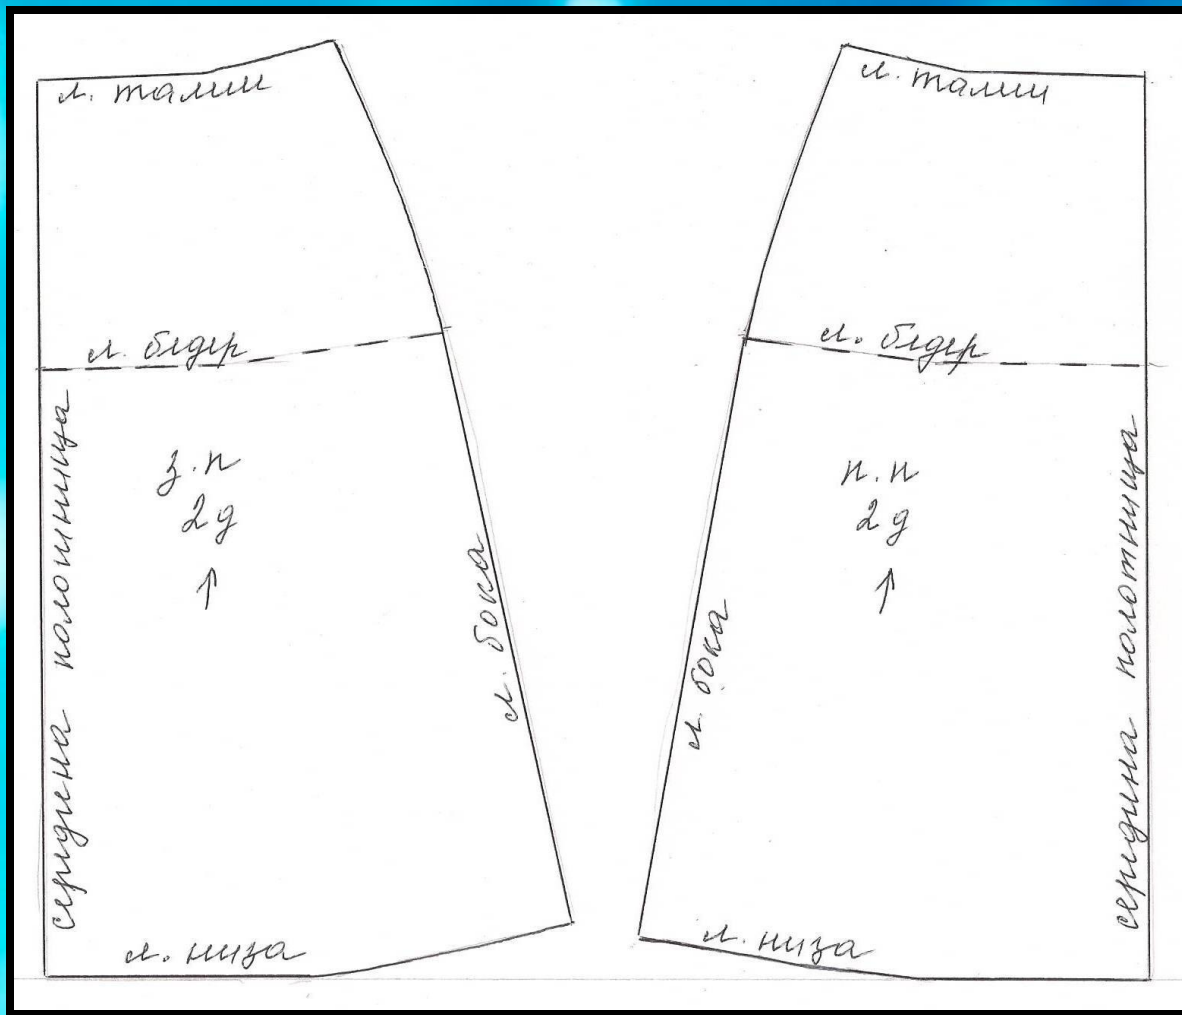 л. талии
л. бедер
середина полотнища
з.п
2д
↑
л. бока
л. низа
л. талии
л. бедер
п.п
2д
↑
л. бока
середина полотнища
л. низа